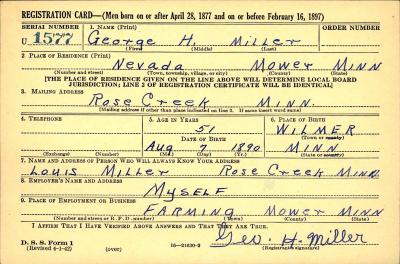 REGISTRATION CARD—(Men born on or after April 28, 1877 and on or before February 16, 1897)
SERIAL NUMBER 1. NAME (Print) ORDER NUMBER
U 1577 George H. Miller
(First) (Middle) (Last)
2. PLACE OF RESIDENCE (Print)
Nevada Mower Minn
(Number and street) (Town, township, village, or city) (County) (State)
[THE PLACE OF RESIDENCE GIVEN ON THE LINE ABOVE WILL DETERMINE LOCAL BOARD
JURISDICTION; LINE 2 OF REGISTRATION CERTIFICATE WILL BE IDENTICAL]
3. MAILING ADDRESS
Rose Creek Minn.
[Mailing address if other than place indicated on line 2. If same insert word same]
4. TELEPHONE 5. AGE IN YEARS 6. PLACE OF BIRTH
51 Wilmer
DATE OF BIRTH (Town or county)
Aug 7 1890 Minn
(Exchange) (Number) (Mo.) (Day) (Yr.) (State or country)
7. NAME AND ADDRESS OF PERSON WHO WILL ALWAYS KNOW YOUR ADDRESS
Louis Miller Rose Creek Minn.
8. EMPLOYER'S NAME AND ADDRESS
Myself
9. PLACE OF EMPLOYMENT OR BUSINESS
Farming Mower Minn
(Number and street or R. F. D. number) (Town) (County) (State)
I AFFIRM THAT I HAVE VERIFIED ABOVE ANSWERS AND THAT THEY ARE TRUE.
D. S. S. Form 1 Geo. H. Miller
(Revised 4-1-42) (over) 16—21630-2 (Registrant's signature)